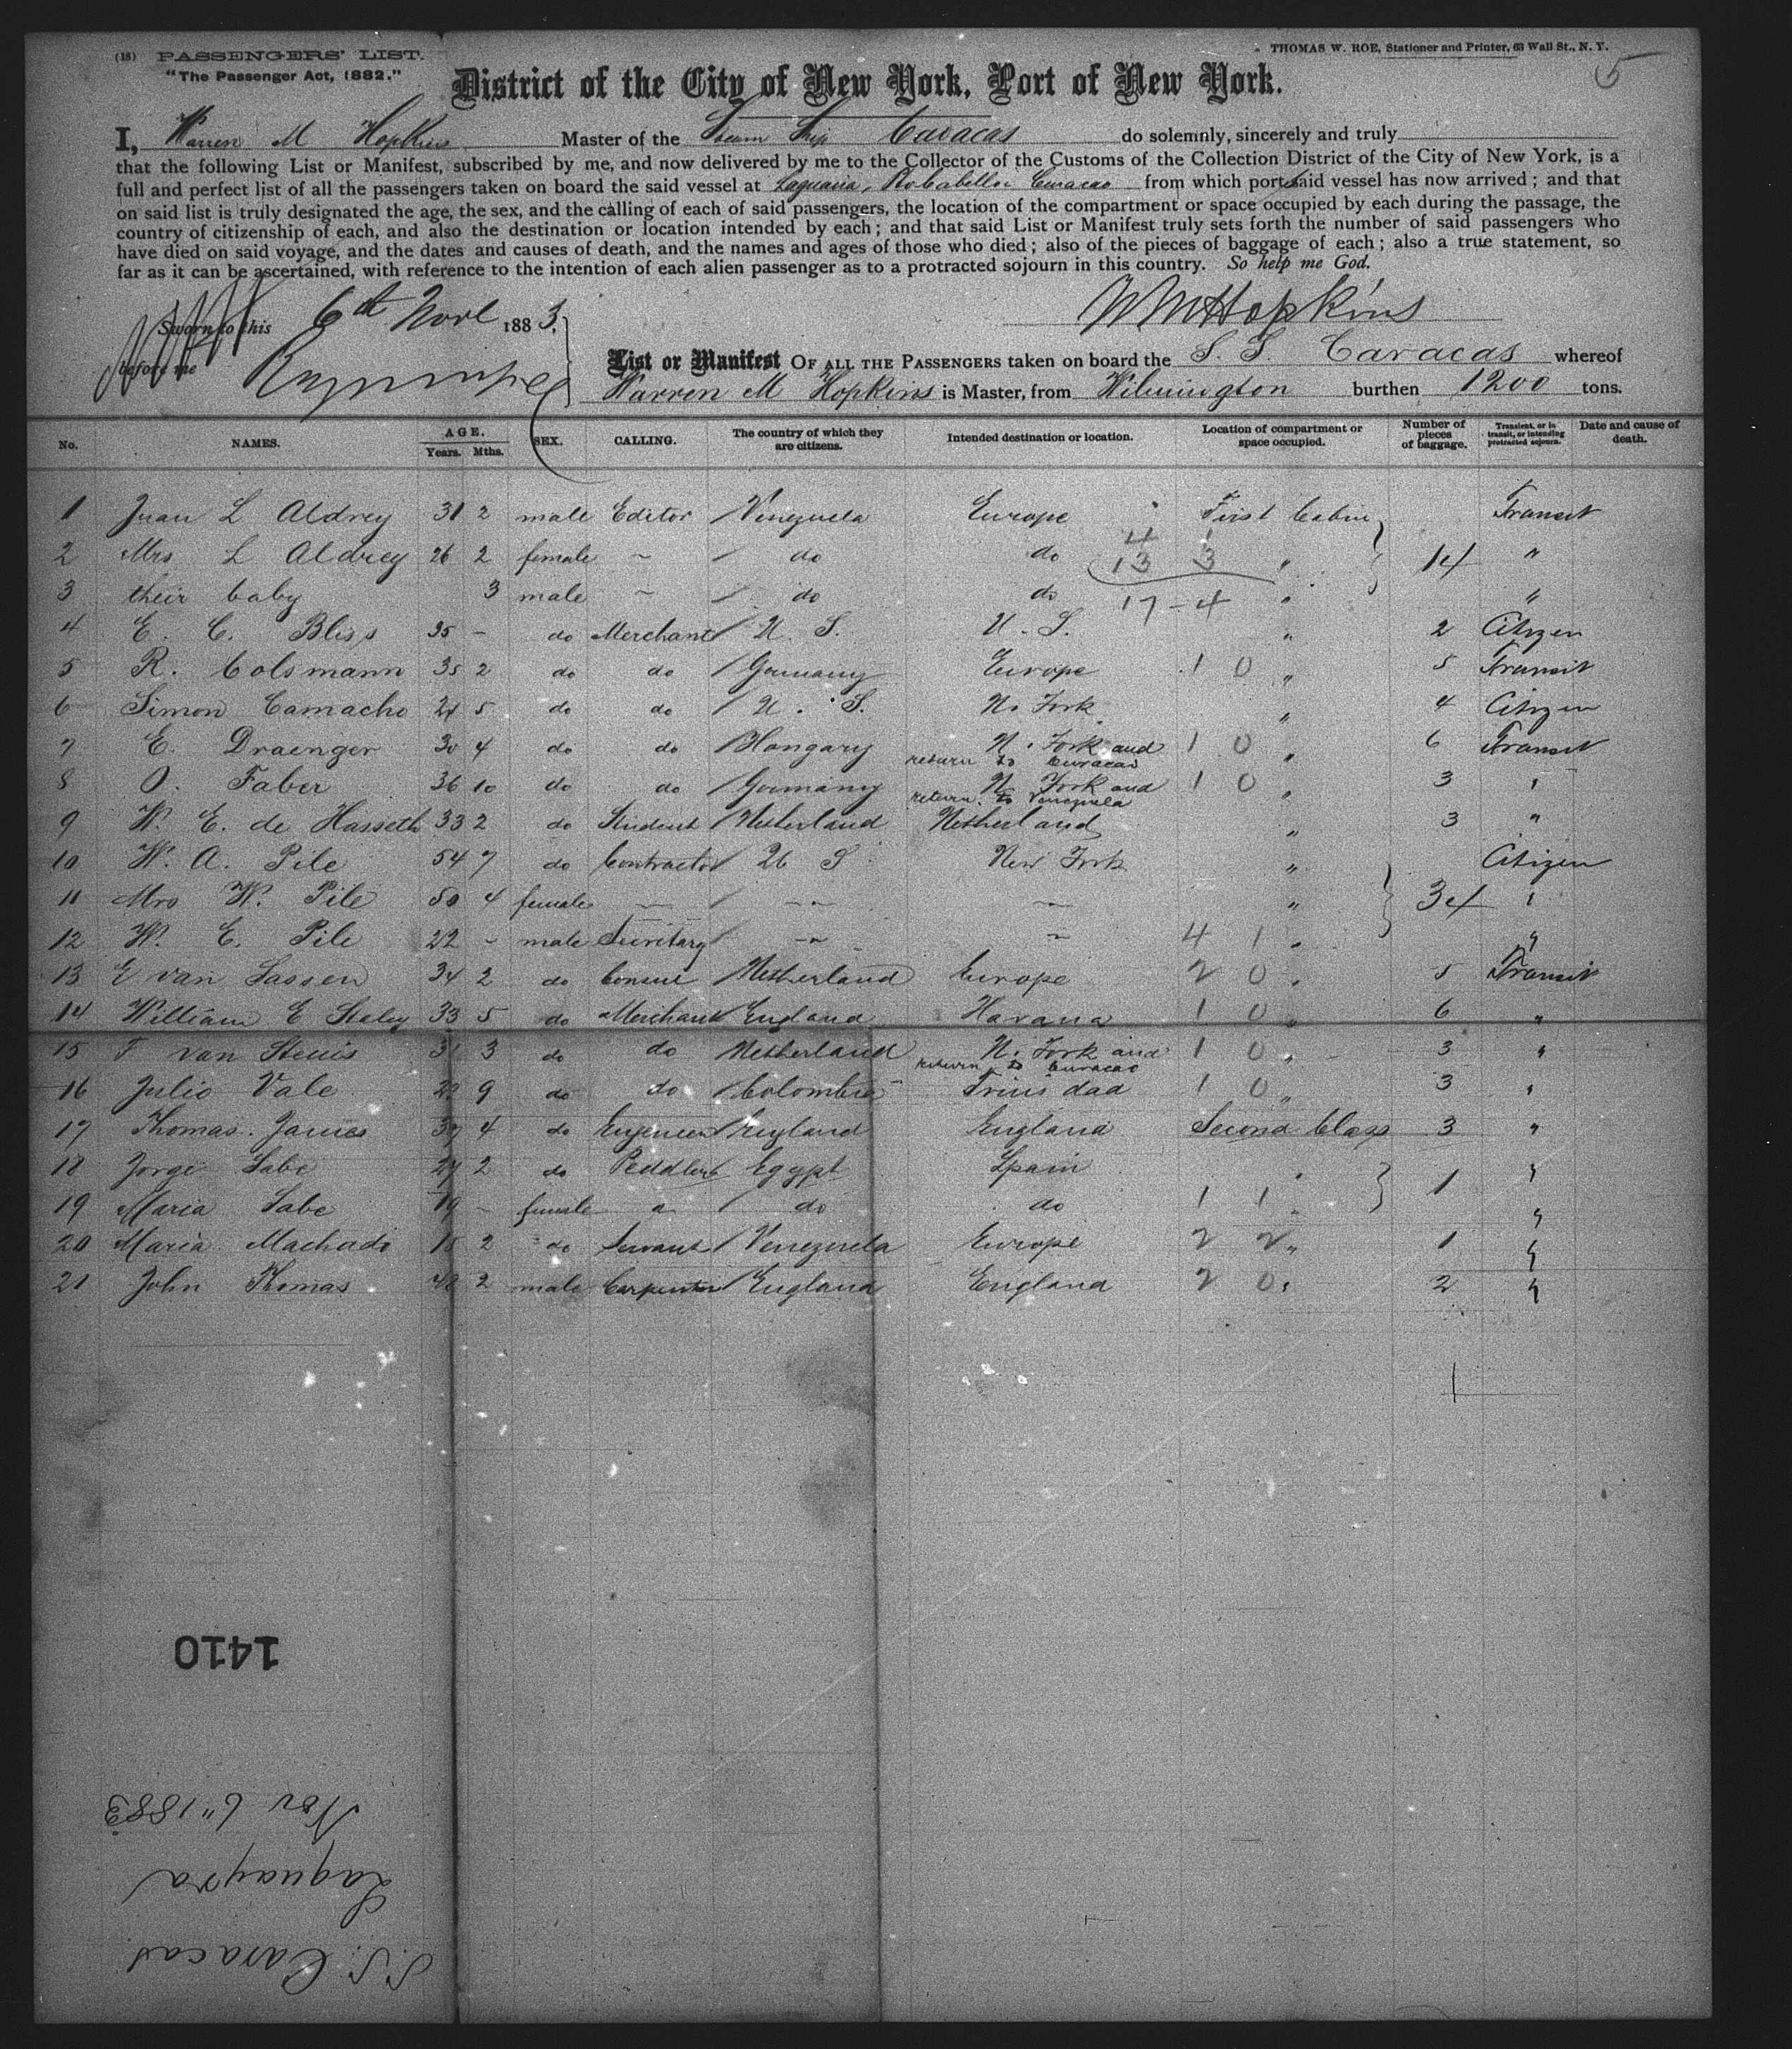 (18) PASSENGERS' LIST.
"The Passenger Act, 1882."
THOMAS W. ROE, Stationer and Printer, 63 Wall St., N. Y.
5
District of the City of New York, Port of New York.
I, Warren M Hopkins Master of the Steam Ship Caracas do solemnly, sincerely and truly
that the following List or Manifest, subscribed by me, and now delivered by me to the Collector of the Customs of the Collection District of the City of New York, is a
full and perfect list of all the passengers taken on board the said vessel at Laguaira, Curacao from which port said vessel has now arrived; and that
on said list is truly designated the age, the sex, and the calling of each of said passengers, the location of the compartment or space occupied by each during the passage, the
country of citizenship of each, and also the destination or location intended by each; and that said List or Manifest truly sets forth the number of said passengers who
have died on said voyage, and the dates and causes of death, and the names and ages of those who died; also of the pieces of baggage of each; also a true statement, so
far as it can be ascertained, with reference to the intention of each alien passenger as to a protracted sojourn in this country. So help me God.
Sworn to this 6th Nov 1883.
before me
W M Hopkins
List or Manifest OF ALL THE PASSENGERS taken on board the S. S. Caracas whereof
Warren M Hopkins is Master, from Wilmington burthen 1200 tons.
No. NAMES. AGE. Years. Mths. SEX. CALLING. The country of which they are citizens. Intended destination or location. Location of compartment or space occupied. Number of pieces of baggage. Transient, or in transit, or intending protracted sojourn. Date and cause of death.
1 Juan L Aldrey 31 2 male Editor Venezuela Europe First Cabin Transit
2 Mrs L Aldrey 26 2 female ~ do do 4 13 3 " 14 "
3 their baby 3 male ~ do do 17 - 4 " "
4 E. C. Bliss 35 - do Merchant U. S. U. S. " 2 Citizen
5 R. Colsmann 35 2 do do Germany Europe 1 0 " 5 Transit
6 Simon Camacho 24 5 do do U. S. N. York " 4 Citizen
7 E. Draenger 30 4 do do Hongary N. York and return to Curacao 1 0 " 6 Transit
8 O. Faber 36 10 do do Germany N York and return to Venezuela 1 0 " 3 "
9 W. E. de Hasseth 33 2 do Student Netherland Netherland " 3 "
10 W. A. Pile 54 7 do Contractor U S New York " Citizen
11 Mrs W. Pile 50 4 female ~ ~ ~ " 34 "
12 W. E. Pile 22 - male Secretary ~ ~ 4 1 " "
13 E van Lassen 34 2 do Consul Netherland Europe 2 0 " 5 Transit
14 William E Staley 33 5 do Merchant England Havana 1 0 " 6 "
15 F van Steuis 31 3 do do Netherland N. York and return to Curacao 1 0 " 3 "
16 Julio Vale 9 do do Colombia Trinidad 1 0 " 3 "
17 Thomas James 4 do Engeneer England England Second Class 3 "
18 Jorge Sabe 27 2 do Peddler Egypt Spain " 1 "
19 Maria Sabe 19 - female " do do 1 1 " "
20 Maria Machado 18 2 do Servant Venezuela Europe 2 2 " 1 "
21 John Thomas 42 2 male Carpenter England England 2 0 " 2 "
1410
S.S. Caracas
Laguayra
Nov 6" 1883